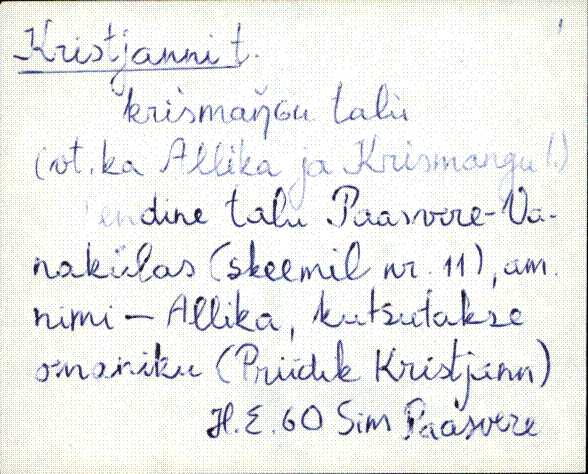 Kristjanni t.
krismaŋ̆Gu talu
(vt. ka Allika ja Krismangu t.)
endine talu Paasvere-Va-
nakülas (skeemil nr. 11), am.
nimi – Allika, kutsutakse
omaniku (Priidik Kristjann)
H.E. 60 Sim Paasvere